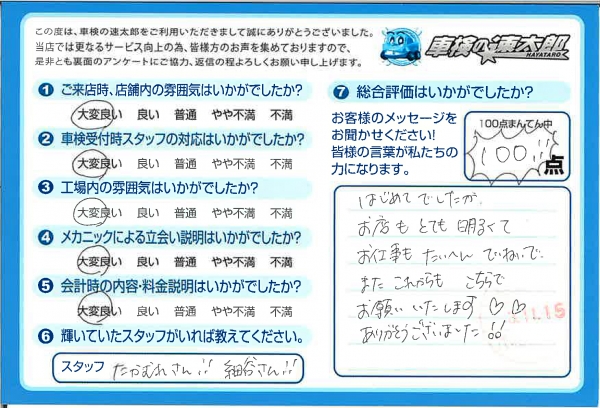 この度は、車検の速太郎をご利用いただきまして誠にありがとうございました。
当店では更なるサービス向上の為、皆様方のお声を集めておりますので、
是非とも裏面のアンケートにご協力、返信の程よろしくお願い申し上げます。
車検の速太郎
HAYATARO
1 ご来店時、店舗内の雰囲気はいかがでしたか?
大変良い 良い 普通 やや不満 不満
2 車検受付時スタッフの対応はいかがでしたか?
大変良い 良い 普通 やや不満 不満
3 工場内の雰囲気はいかがでしたか?
大変良い 良い 普通 やや不満 不満
4 メカニックによる立会い説明はいかがでしたか?
大変良い 良い 普通 やや不満 不満
5 会計時の内容・料金説明はいかがでしたか?
大変良い 良い 普通 やや不満 不満
6 輝いていたスタッフがいれば教えてください。
スタッフ たかむれさん!! 細谷さん!!
7 総合評価はいかがでしたか?
お客様のメッセージを
お聞かせください!
皆様の言葉が私たちの
力になります。
100点まんてん中
100!! 点
はじめてでしたが、
お店もとても明るくて
お仕事もたいへんていねいで、
またこれからもこちらで
お願いいたします♡♡
ありがとうございました!!
11.15